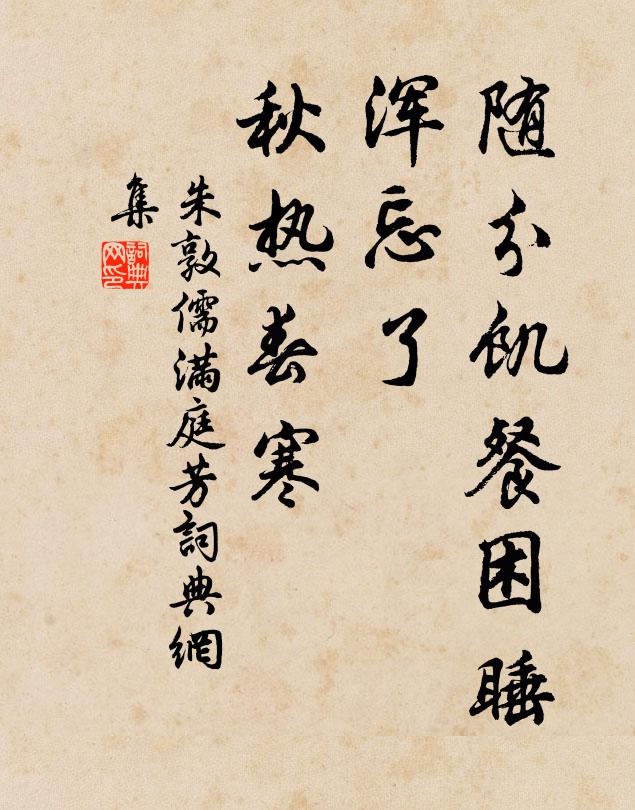 随分饥餐困睡
浑忘了
秋热春寒
朱敦儒满庭芳詞典網
集
詞典
网印